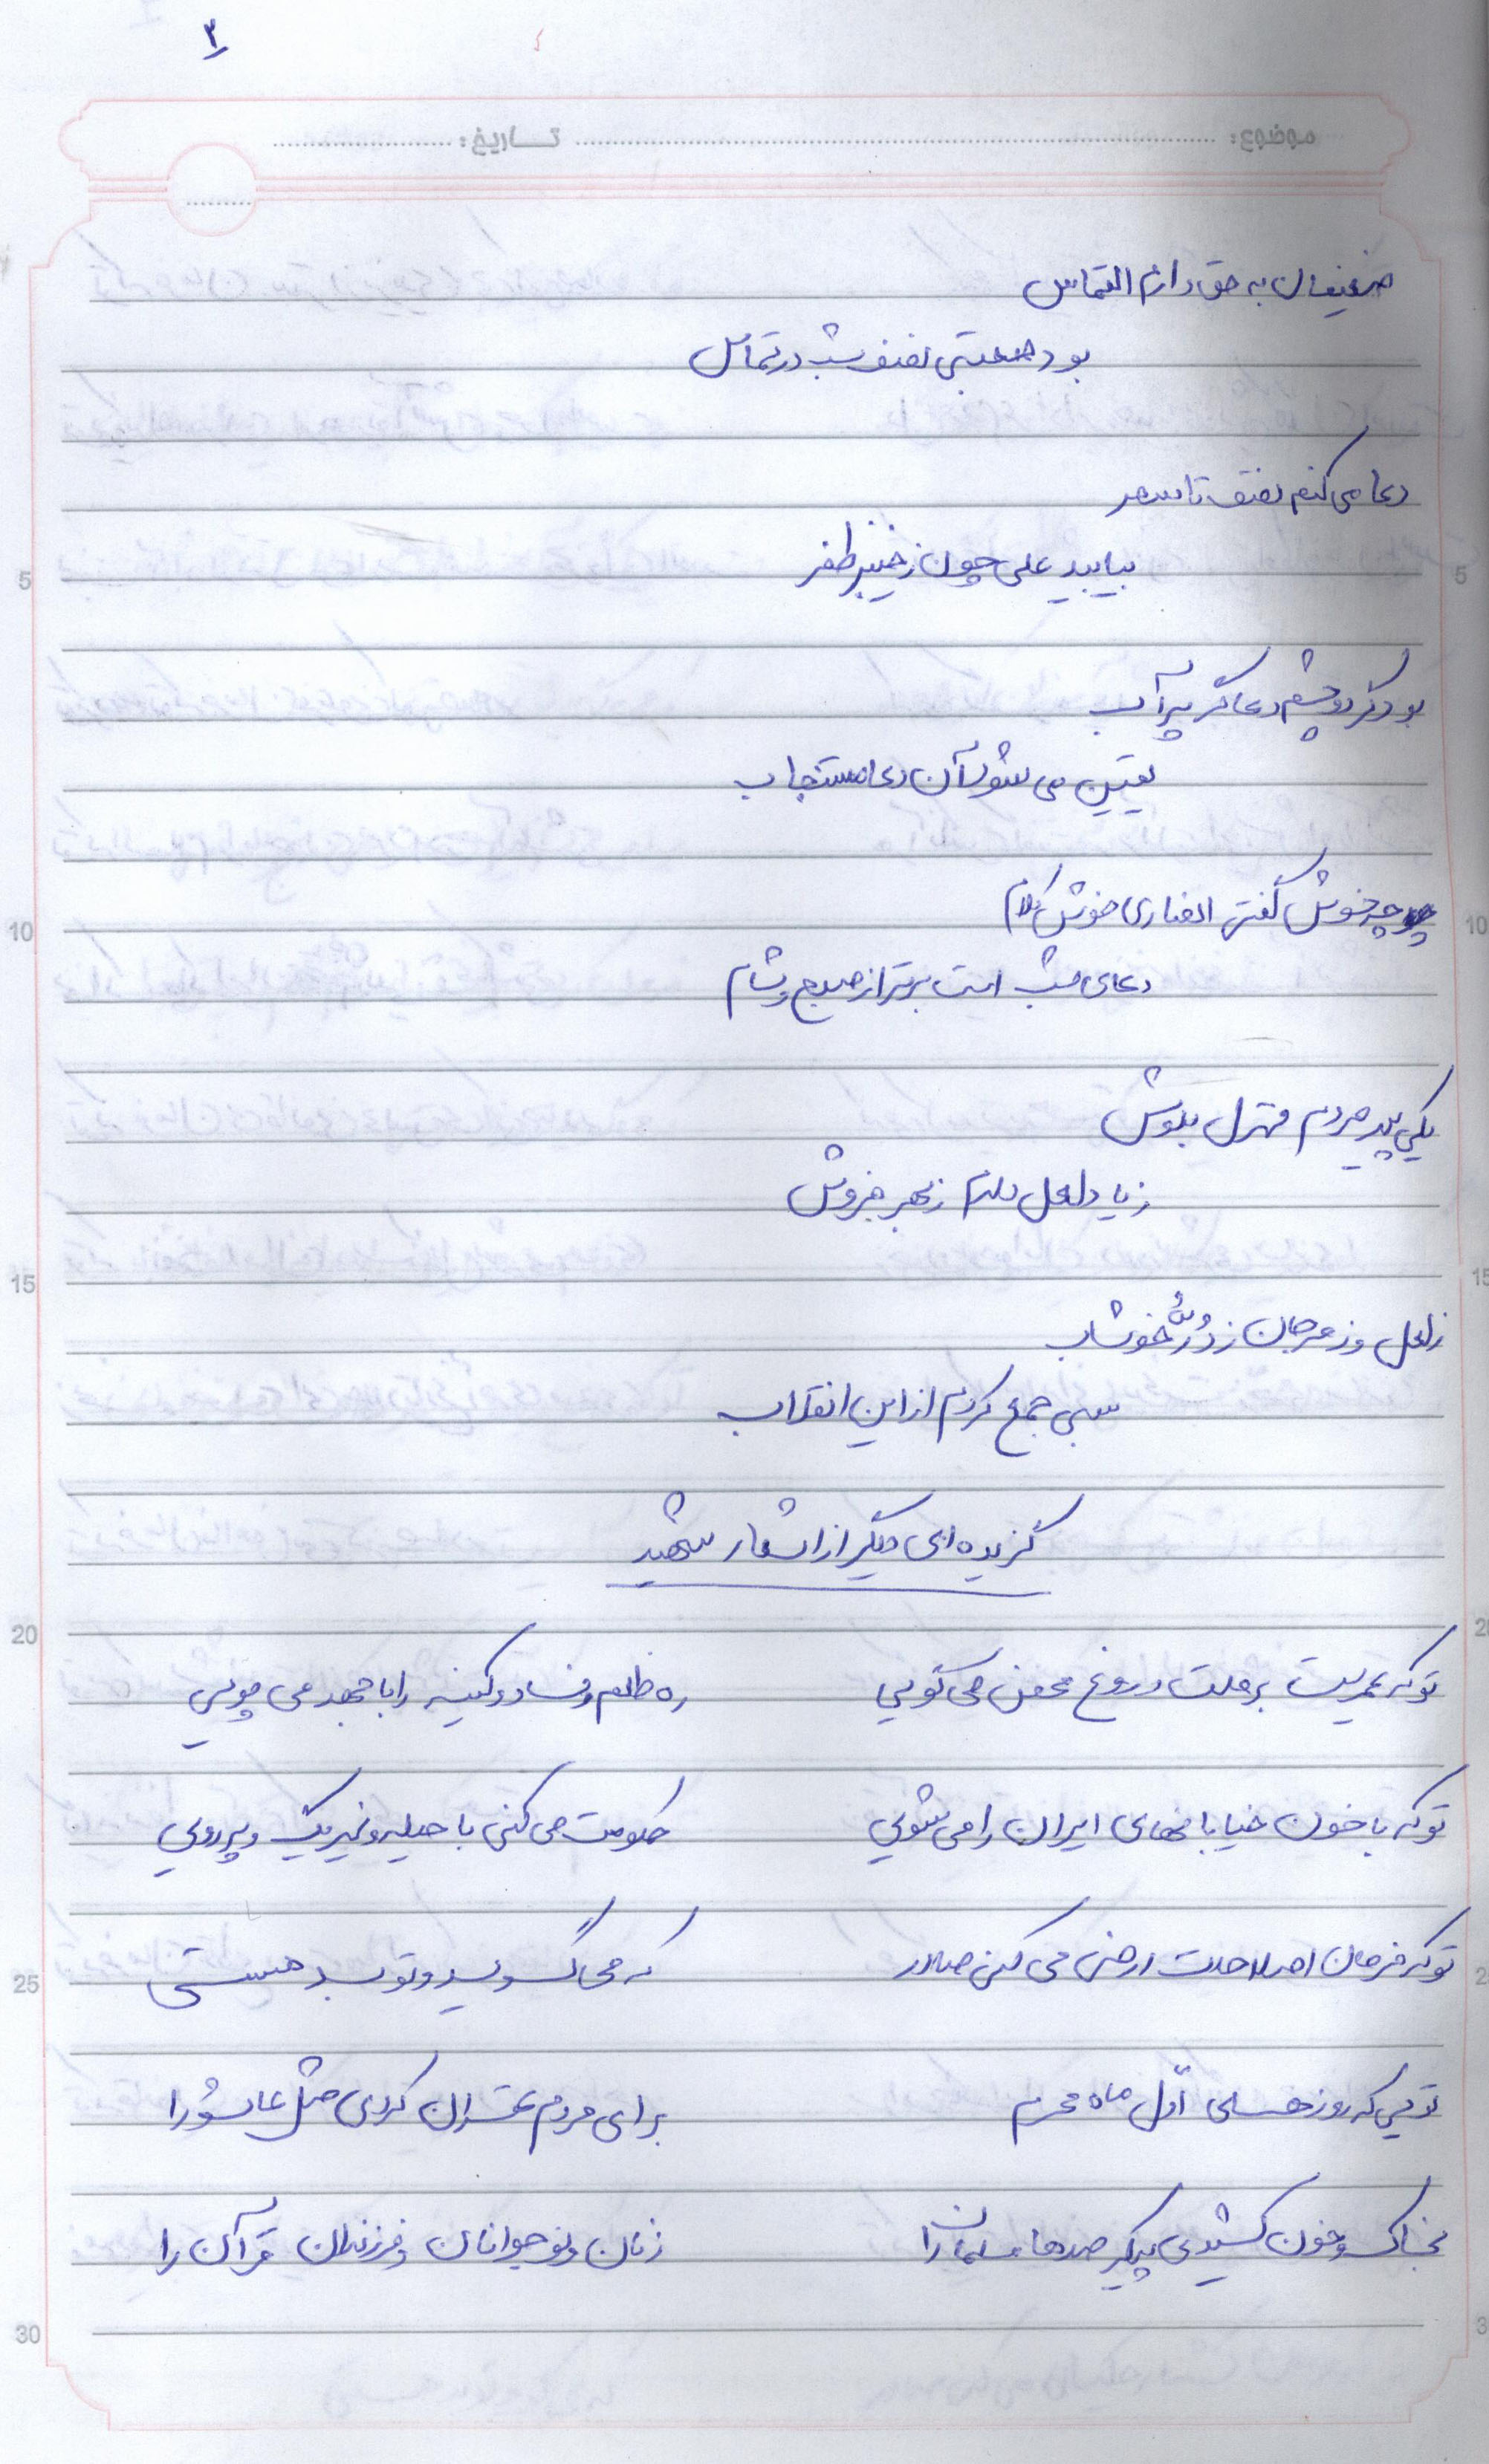 ۳
موضوع: تاریخ:
ضعیفان به حق دارم التماس
بود صحبتی نصف شب در تماس
دعا می کنم نصف تا سحر
بیابید علی چون ز خیبر ظفر
بود گر دو چشم دعا گر پر آب
یقین می شود آن دعا مستجاب
چه خوش گفت انصاری خوش کلام
دعای شب است برتر از صبح و شام
یکی پیر مردم
ز یاد لعل دارم ز بحر خروش
ز لعل و ز مرجان ز دُرِّ خوشاب
بسی جمع کردم از این انقلاب
گزیده ای دیگر از اشعار شهید
تو که عمریست بر ملت دروغ محض می گویی ره ظلم و فساد و کینه را با جهد می پویی
تو که با خون خیابانهای ایران را می شویی حکومت می کنی با حیله و نیرنگ و پررویی
تو که فرمان اصلاحات ارضی می کنی صادر که
تویی که روز اوّل ماه محرم برای مردم تهران کردی مثل عاشورا
بخاک و خون کشیدی پیکر صدها مسلمان را زنان و نوجوانان و فرزندان قرآن را
5
10
15
20
25
30
5
10
15